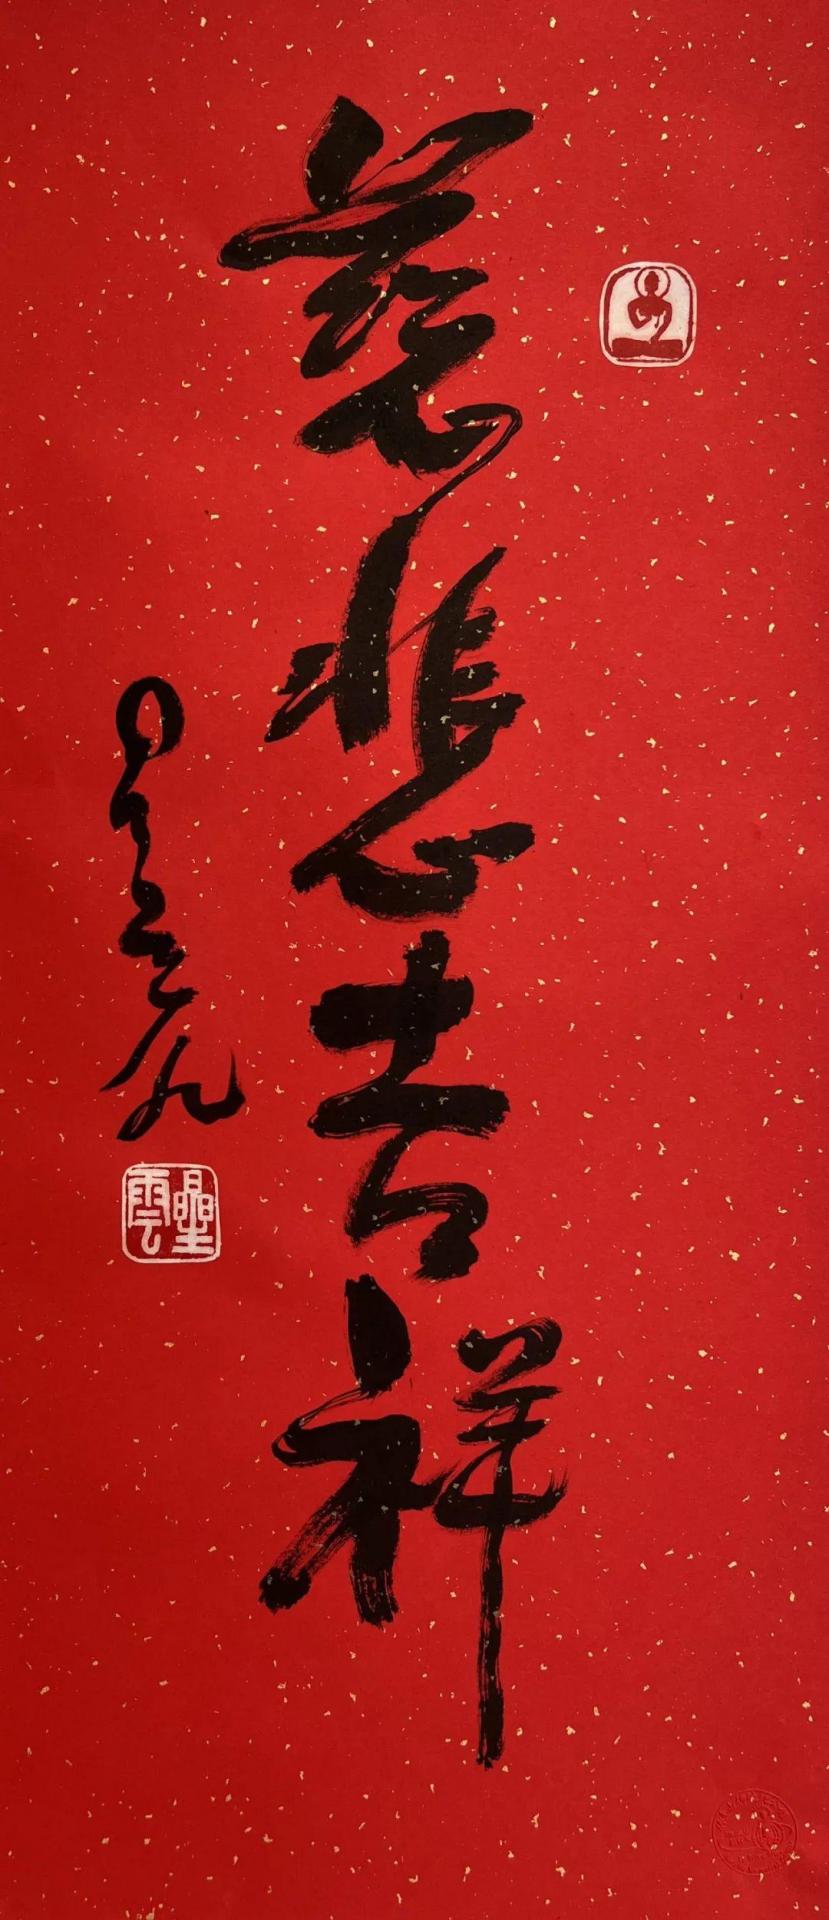 慈悲吉祥
星雲
星雲